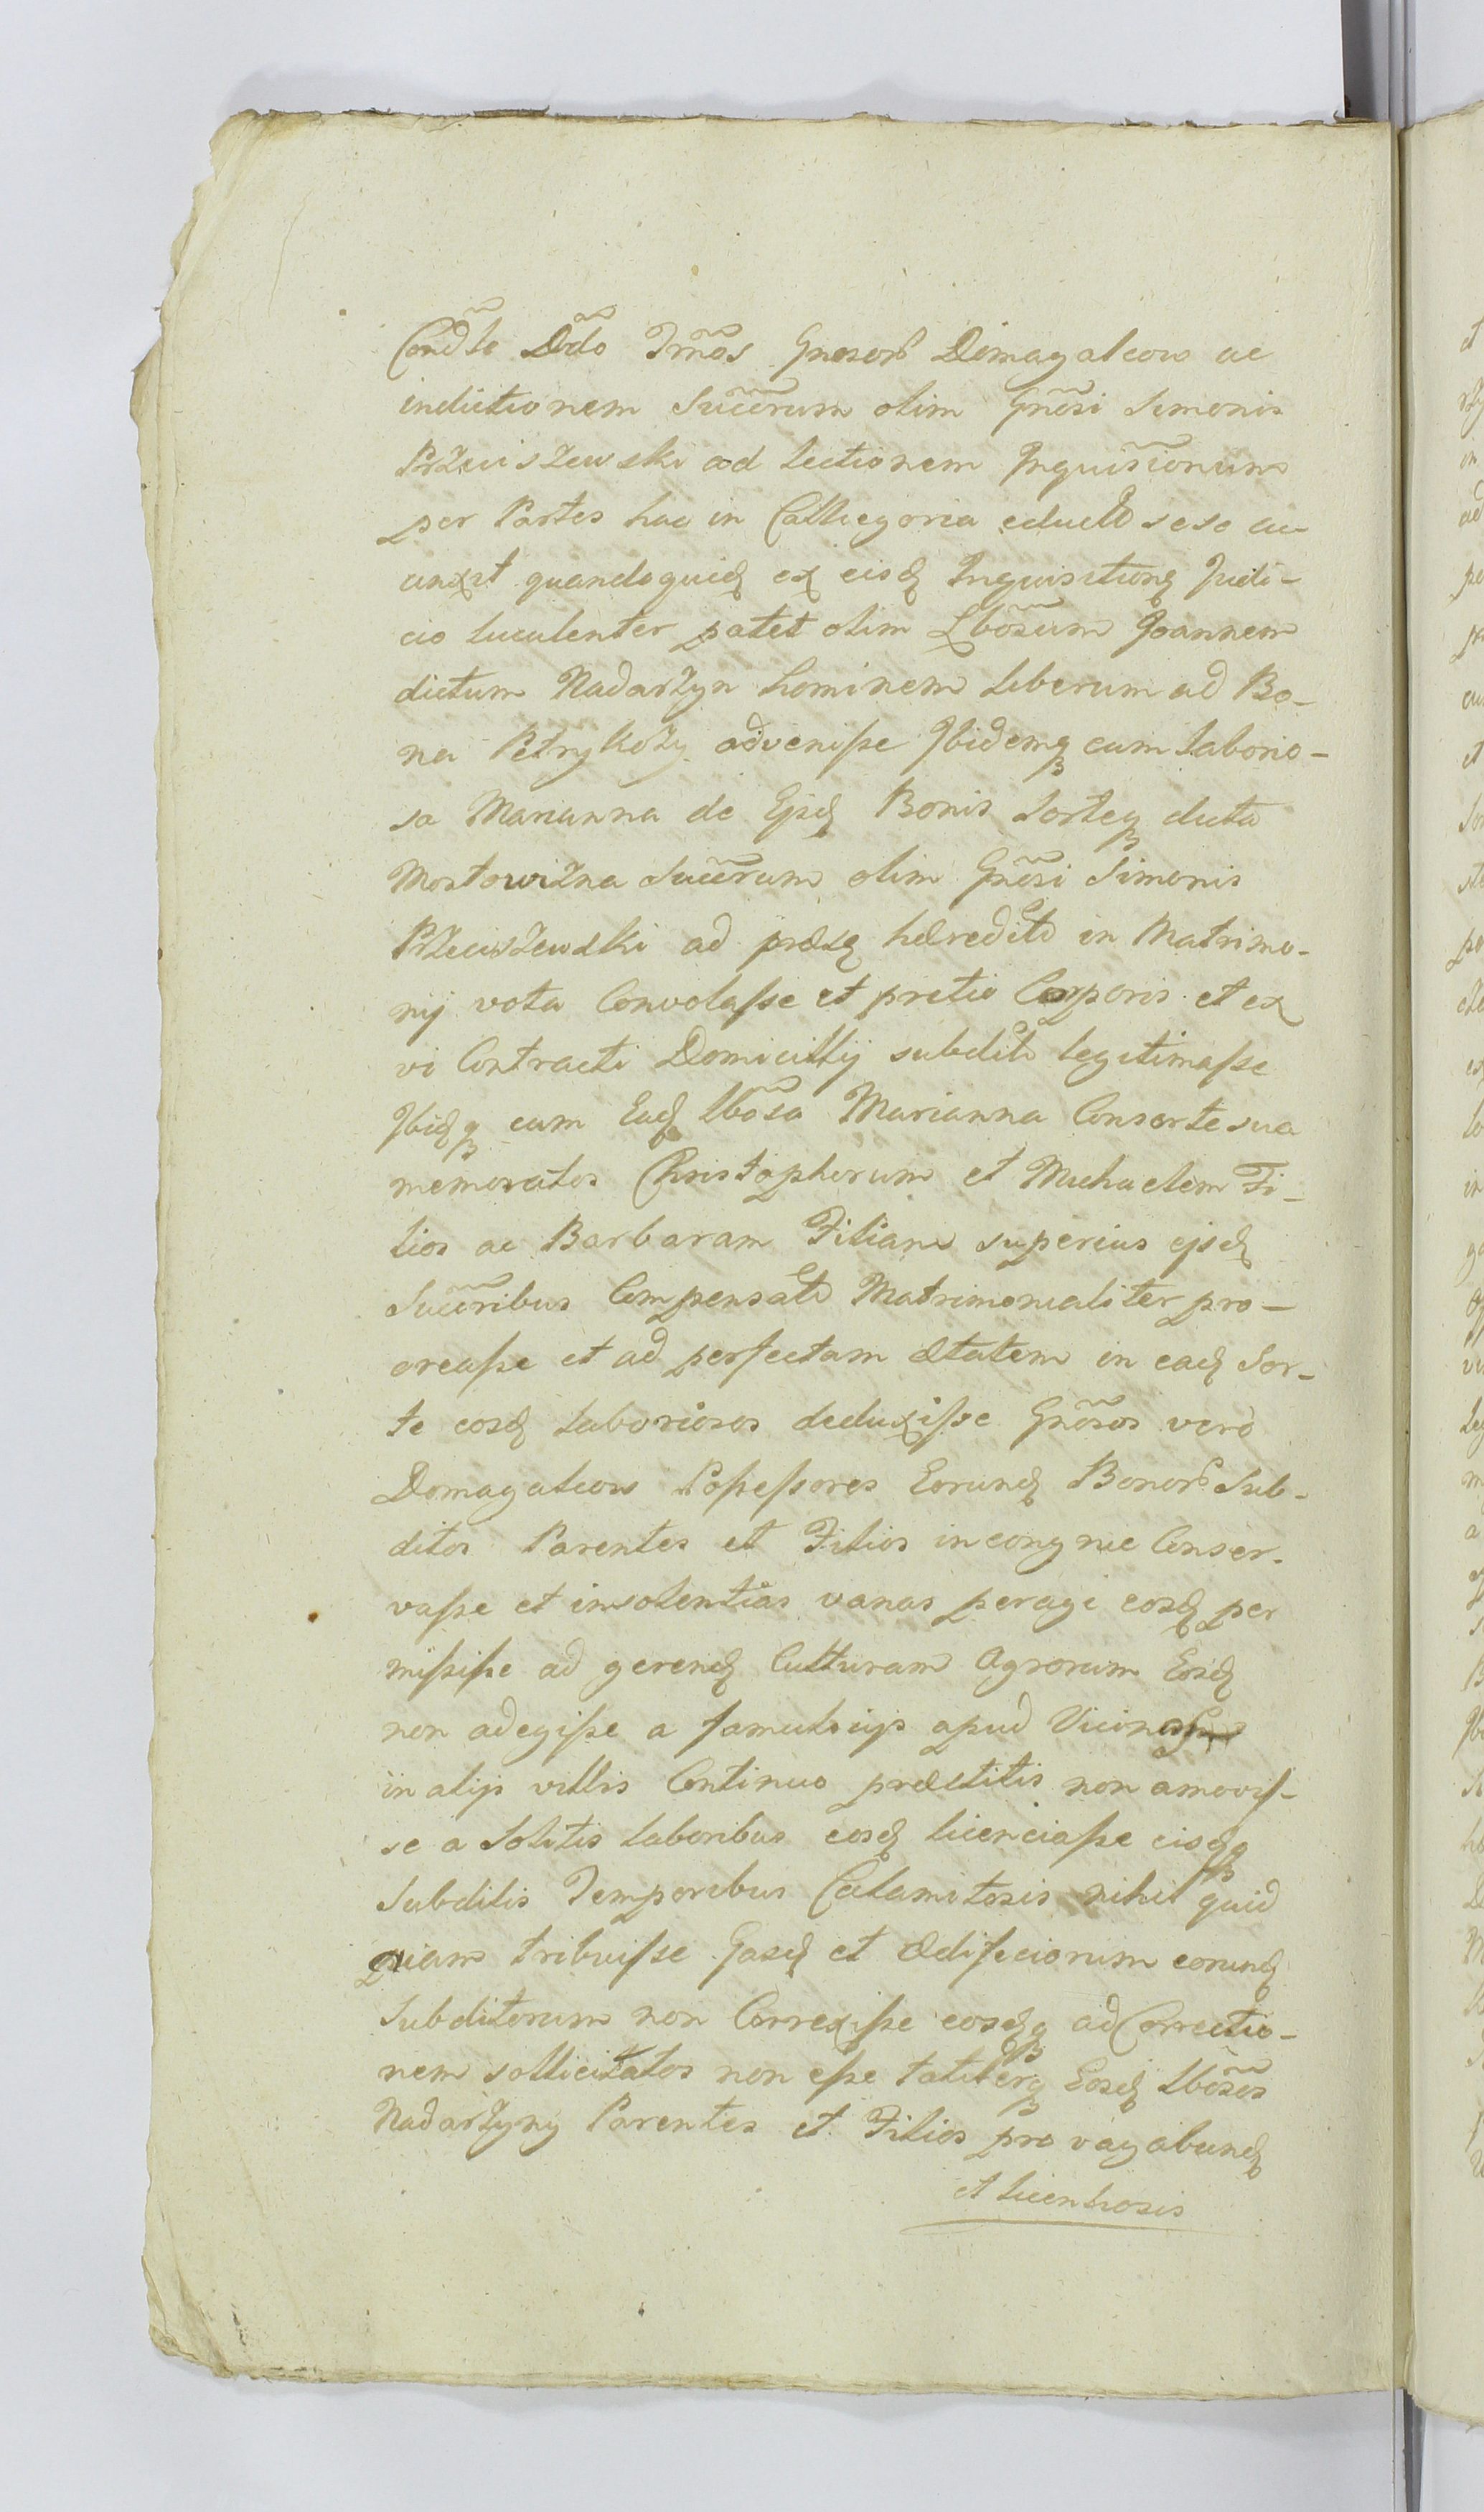 Condto Ddo Jrmos Gnosor Domagalcow ac
indictionem Succrum olim Gnosi Simonis
Przeciszewski ad lectionem Inquisionum
per Partes hac in Cathegoria educt sese ac-
cinxit quandoquid ex eisd Inquisitiong Judi-
cio luculenter patet olim Lbosum Joannem
dictum Nadarzyn hominem liberum ad Bo-
na Petrykozy advenisse Ibidemq cum laborio-
sa Marianna de Ejsd Bonis Sorteq dicta
Mostowizna Succrum olim Gnosi Simonis
Przeciszewski ad præsg hæredit in Matrimo-
nij vota Convolasse et pretio Corporis et ex
vi Contracti Domicillij subdit legitimasse
Ibidq cum Ead lbosa Marianna Consorte sua
memoratos Christophorum et Michaelem Fi-
lios ac Barbaram Filiam superius ejsd
Succribus Compensat Matrimonialiter pro-
creasse et ad perfectam ætatem in ead Sor-
te eosd laboriosos deduxisse Gnosos verò
Domagalcow Possessores Eorund Bonor Sub-
ditos Parentes et Filios incongrue Conser-
vasse et insolentias vanas peragi eosd per
misisse ad gerend Culturam Agrorum Eosd
non adegisse a famulicijs apud Vicinos
in alijs villis Continuo præstitis non amovis-
se a Solitis laboribus eosd licenciasse eisdq
Subditis Temporibus Calamitosis nihil quid
quam tribuisse Casd et Ædificiorum eorund
Subditorum non Correxisse eosdq ad Correctio-
nem sollicitatos non esse taliterq Eosd lbosos
Nadarzyny Parentes et Filios pro vagabund
et licentiosis